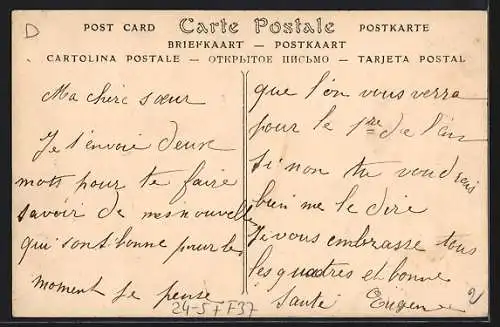 D
POST CARD Carte Postale POSTKARTE
BRIEFKAART — POSTKAART
CARTOLINA POSTALE — ОТКРЫТОЕ ПИСЬМО — TARJETA POSTAL
Ma chère sœur
Je t'envoie deux
mots pour te faire
savoir de mes nouvelles
qui sont bonne pour le
moment je pense
que l'on vous verra
pour le 1re de l'an
Si non tu voudrais
bien me le dire
Je vous embrasse tous
les quatres et bonne
Santé Eugene
24-5 + F37